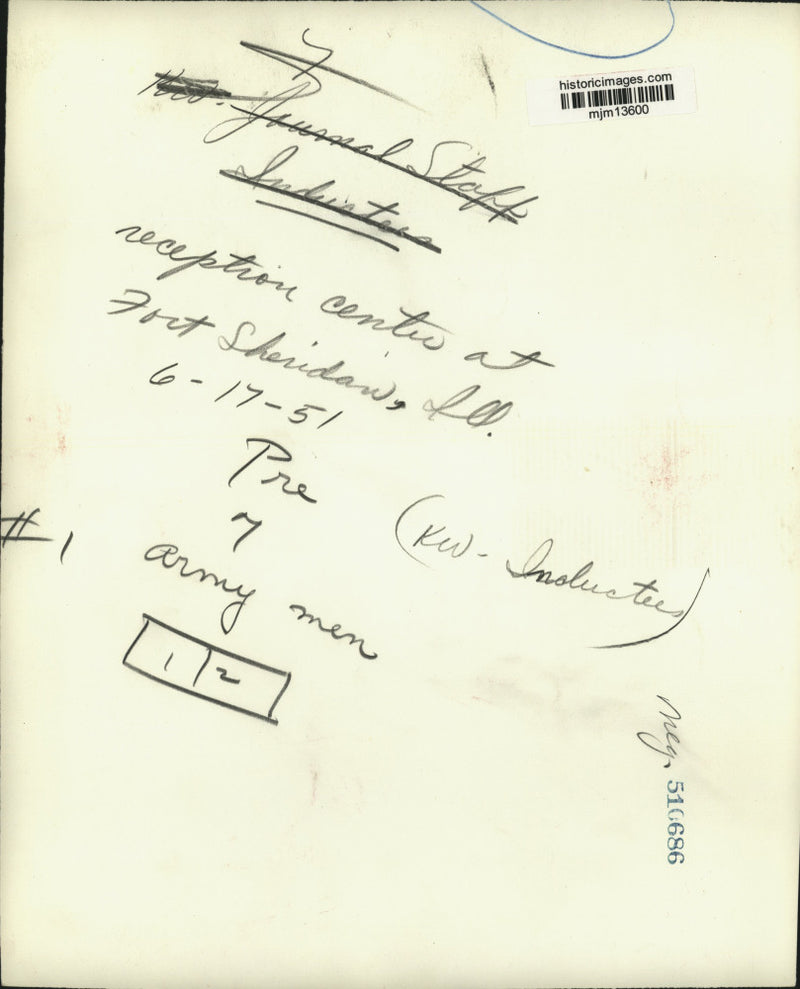 historicimages.com
mjm13600
Journal Staff
Inductees
reception center at
Fort Sheridan, Ill.
6-17-51
Pre
7
#1
army men
(KW - Inductees)
1 2
Neg. 510686